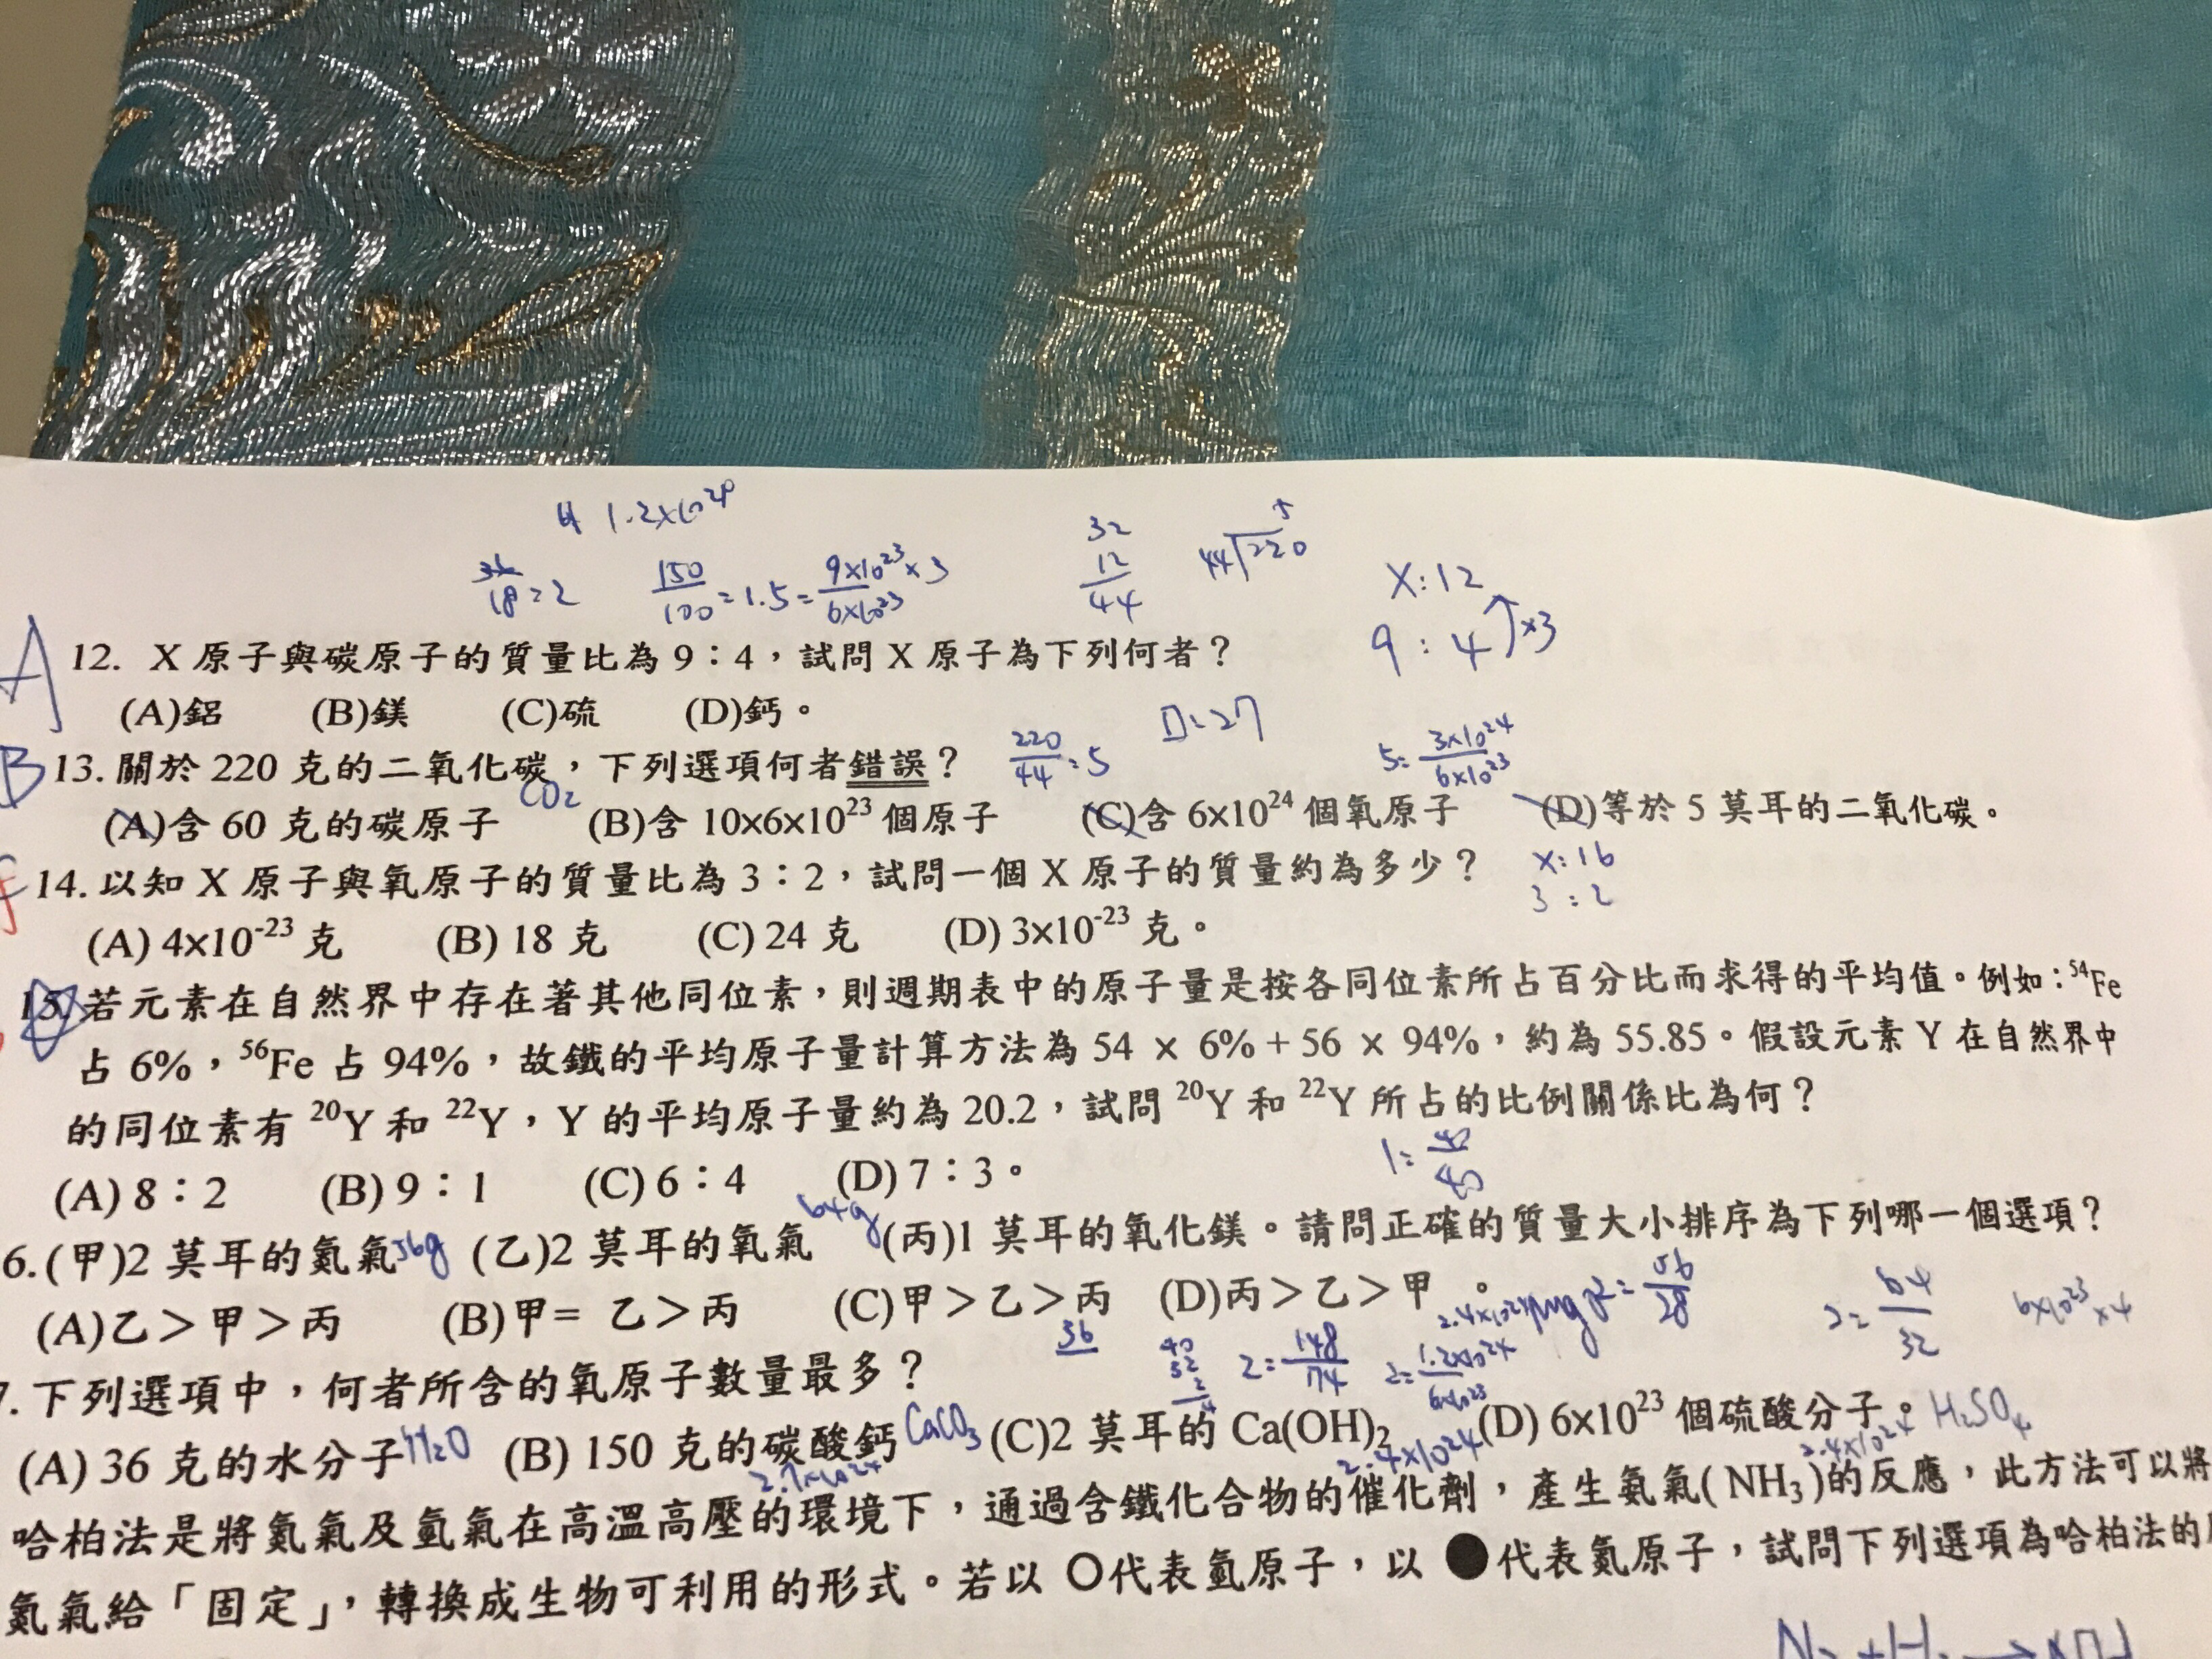 1.2×10²⁴
36/18=2 150/100=1.5=9×10²³×3/6×10²³ 32 12 44 44 220 5 X:12
9:4 ×3
A 12. X 原子與碳原子的質量比為 9：4，試問 X 原子為下列何者？
(A)鋁 (B)鎂 (C)硫 (D)鈣。 =27
B 13. 關於 220 克的二氧化碳，下列選項何者錯誤？ 220/44=5 5=3×10²⁴/6×10²³
CO₂
(A)含 60 克的碳原子 (B)含 10×6×10²³ 個原子 (C)含 6×10²⁴ 個氧原子 (D)等於 5 莫耳的二氧化碳。
14. 以知 X 原子與氧原子的質量比為 3：2，試問一個 X 原子的質量約為多少？ X:16
3:2
(A) 4×10⁻²³ 克 (B) 18 克 (C) 24 克 (D) 3×10⁻²³ 克。
15. 若元素在自然界中存在著其他同位素，則週期表中的原子量是按各同位素所占百分比而求得的平均值。例如：⁵⁴Fe
占 6%，⁵⁶Fe 占 94%，故鐵的平均原子量計算方法為 54 × 6% + 56 × 94%，約為 55.85。假設元素 Y 在自然界中
的同位素有 ²⁰Y 和 ²²Y，Y 的平均原子量約為 20.2，試問 ²⁰Y 和 ²²Y 所占的比例關係比為何？
1=40/40
(A) 8：2 (B) 9：1 (C) 6：4 (D) 7：3。
6. (甲)2 莫耳的氮氣 56g (乙)2 莫耳的氧氣 64g (丙)1 莫耳的氧化鎂。請問正確的質量大小排序為下列哪一個選項？
(A)乙＞甲＞丙 (B)甲= 乙＞丙 (C)甲＞乙＞丙 (D)丙＞乙＞甲 。 2=56/28 2=64/32 6×10²³×4
36 2=148/74 2=1.2×10²⁴/6×10²³
7. 下列選項中，何者所含的氧原子數量最多？
(A) 36 克的水分子 H₂O (B) 150 克的碳酸鈣 CaCO₃ (C)2 莫耳的 Ca(OH)₂ (D) 6×10²³ 個硫酸分子。 H₂SO₄
2.7×10²⁴ 2.4×10²⁴ 2.4×10²⁴
哈柏法是將氮氣及氫氣在高溫高壓的環境下，通過含鐵化合物的催化劑，產生氨氣( NH₃ )的反應，此方法可以將
氮氣給「固定」，轉換成生物可利用的形式。若以 ○代表氫原子，以 ●代表氮原子，試問下列選項為哈柏法的